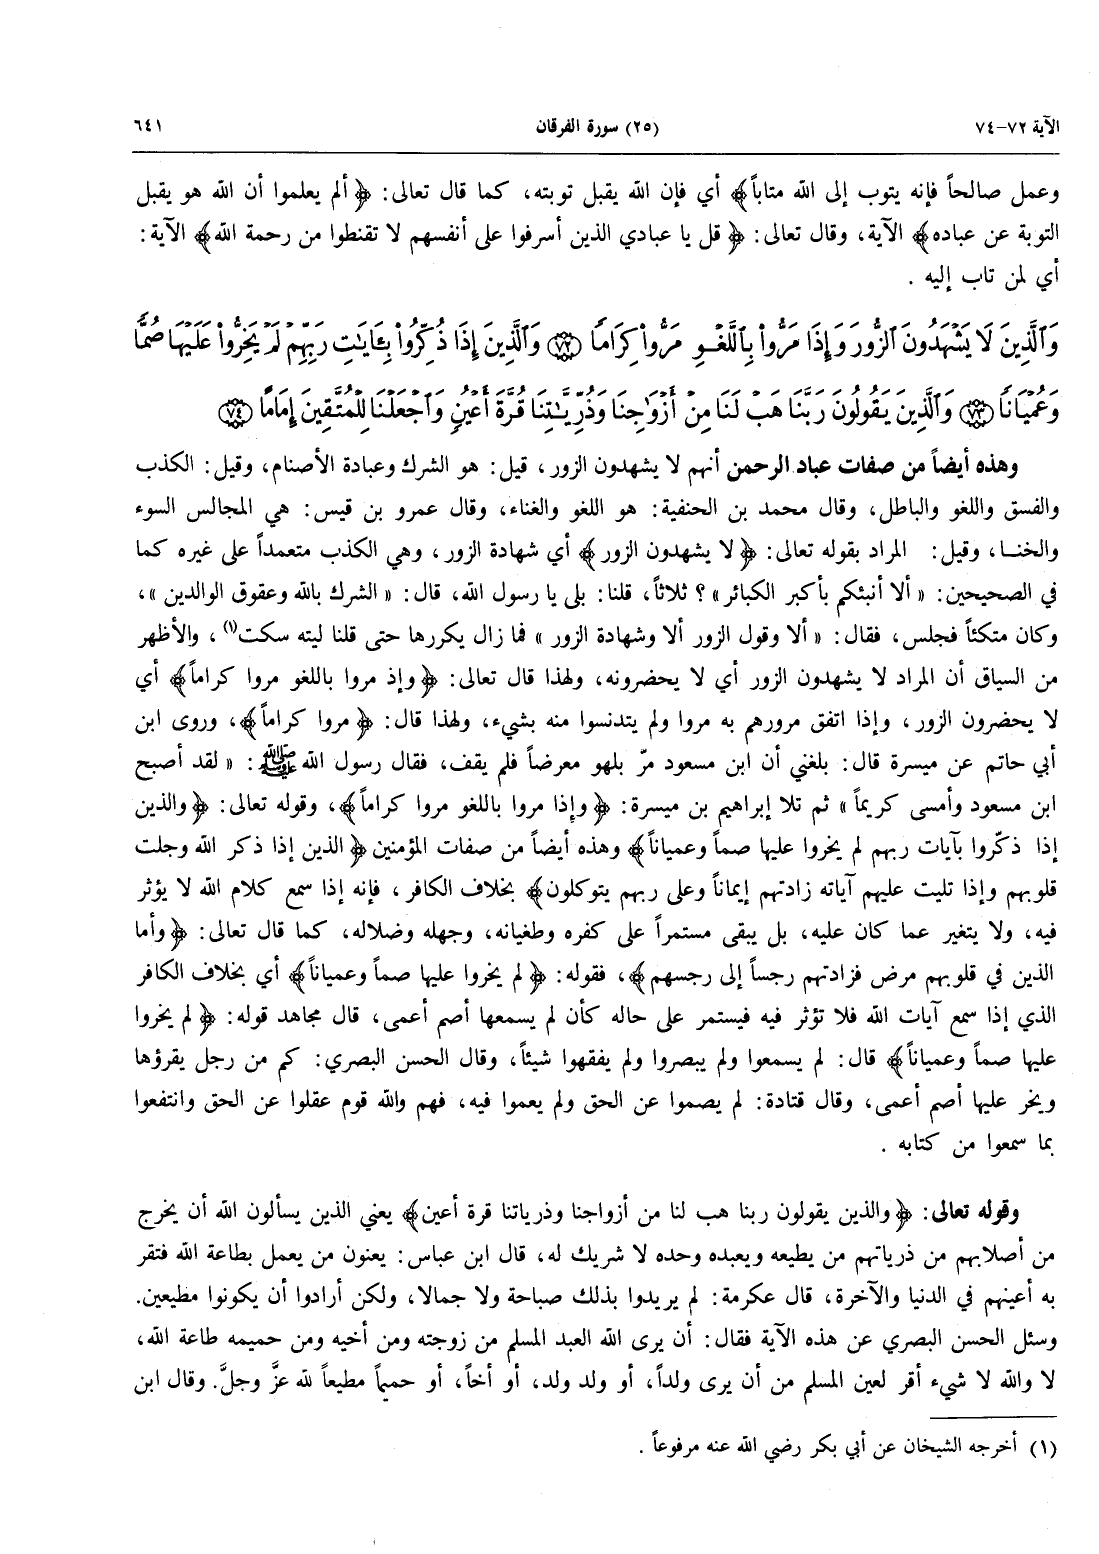 الآية ٧٢-٧٤ (٢٥) سورة الفرقان ٦٤١
وعمل صالحاً فإنه يتوب إلى الله متاباً﴾ أي فإن الله يقبل توبته، كما قال تعالى: ﴿ألم يعلموا أن الله هو يقبل
التوبة عن عباده﴾ الآية، وقال تعالى: ﴿قل يا عبادي الذين أسرفوا على أنفسهم لا تقنطوا من رحمة الله﴾ الآية:
أي لمن تاب إليه .
وَٱلَّذِينَ لَا يَشْهَدُونَ ٱلزُّورَ وَإِذَا مَرُّواْ بِٱللَّغْوِ مَرُّواْ كِرَامًا ۝٧٢ وَٱلَّذِينَ إِذَا ذُكِّرُواْ بِـَٔايَٰتِ رَبِّهِمْ لَمْ يَخِرُّواْ عَلَيْهَا صُمًّا
وَعُمْيَانًا ۝٧٣ وَٱلَّذِينَ يَقُولُونَ رَبَّنَا هَبْ لَنَا مِنْ أَزْوَٰجِنَا وَذُرِّيَّٰتِنَا قُرَّةَ أَعْيُنٍ وَٱجْعَلْنَا لِلْمُتَّقِينَ إِمَامًا ۝٧٤
وهذه أيضاً من صفات عباد الرحمن أنهم لا يشهدون الزور، قيل: هو الشرك وعبادة الأصنام، وقيل: الكذب
والفسق واللغو والباطل، وقال محمد بن الحنفية: هو اللغو والغناء، وقال عمرو بن قيس: هي المجالس السوء
والخنا، وقيل: المراد بقوله تعالى: ﴿لا يشهدون الزور﴾ أي شهادة الزور، وهي الكذب متعمداً على غيره كما
في الصحيحين: «ألا أنبئكم بأكبر الكبائر»؟ ثلاثاً، قلنا: بلى يا رسول الله، قال: «الشرك بالله وعقوق الوالدين»،
وكان متكئاً فجلس، فقال: «ألا وقول الزور ألا وشهادة الزور» فما زال يكررها حتى قلنا ليته سكت(١)، والأظهر
من السياق أن المراد لا يشهدون الزور أي لا يحضرونه، ولهذا قال تعالى: ﴿وإذ مروا باللغو مروا كراماً﴾ أي
لا يحضرون الزور، وإذا اتفق مرورهم به مروا ولم يتدنسوا منه بشيء، ولهذا قال: ﴿مروا كراماً﴾، وروى ابن
أبي حاتم عن ميسرة قال: بلغني أن ابن مسعود مرّ بلهو معرضاً فلم يقف، فقال رسول الله ﷺ: «لقد أصبح
ابن مسعود وأمسى كريماً» ثم تلا إبراهيم بن ميسرة: ﴿وإذا مروا باللغو مروا كراماً﴾، وقوله تعالى: ﴿والذين
إذا ذكّروا بآيات ربهم لم يخروا عليها صماً وعمياناً﴾ وهذه أيضاً من صفات المؤمنين ﴿الذين إذا ذكر الله وجلت
قلوبهم وإذا تليت عليهم آياته زادتهم إيماناً وعلى ربهم يتوكلون﴾ بخلاف الكافر، فإنه إذا سمع كلام الله لا يؤثر
فيه، ولا يتغير عما كان عليه، بل يبقى مستمراً على كفره وطغيانه، وجهله وضلاله، كما قال تعالى: ﴿وأما
الذين في قلوبهم مرض فزادتهم رجساً إلى رجسهم﴾، فقوله: ﴿لم يخروا عليها صماً وعمياناً﴾ أي بخلاف الكافر
الذي إذا سمع آيات الله فلا تؤثر فيه فيستمر على حاله كأن لم يسمعها أصم أعمى، قال مجاهد قوله: ﴿لم يخروا
عليها صماً وعمياناً﴾ قال: لم يسمعوا ولم يبصروا ولم يفقهوا شيئاً، وقال الحسن البصري: كم من رجل يقرؤها
ويخر عليها أصم أعمى، وقال قتادة: لم يصموا عن الحق ولم يعموا فيه، فهم والله قوم عقلوا عن الحق وانتفعوا
بما سمعوا من كتابه .
وقوله تعالى: ﴿والذين يقولون ربنا هب لنا من أزواجنا وذرياتنا قرة أعين﴾ يعني الذين يسألون الله أن يخرج
من أصلابهم من ذرياتهم من يطيعه ويعبده وحده لا شريك له، قال ابن عباس: يعنون من يعمل بطاعة الله فتقر
به أعينهم في الدنيا والآخرة، قال عكرمة: لم يريدوا بذلك صباحة ولا جمالا، ولكن أرادوا أن يكونوا مطيعين.
وسئل الحسن البصري عن هذه الآية فقال: أن يرى الله العبد المسلم من زوجته ومن أخيه ومن حميمه طاعة الله،
لا والله لا شيء أقر لعين المسلم من أن يرى ولداً، أو ولد ولد، أو أخاً، أو حميماً مطيعاً لله عزَّ وجلَّ. وقال ابن
(١) أخرجه الشيخان عن أبي بكر رضي الله عنه مرفوعاً .